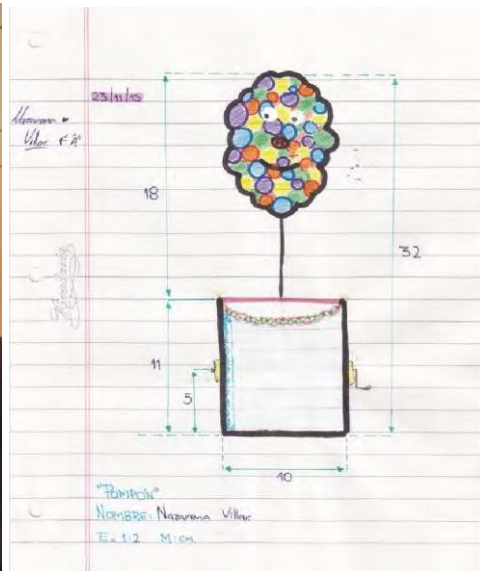 23/11/15
Villar
18
32
11
5
10
"POMPÓN"
NOMBRE: Nazarena Villar
E. 1:2 M: cm